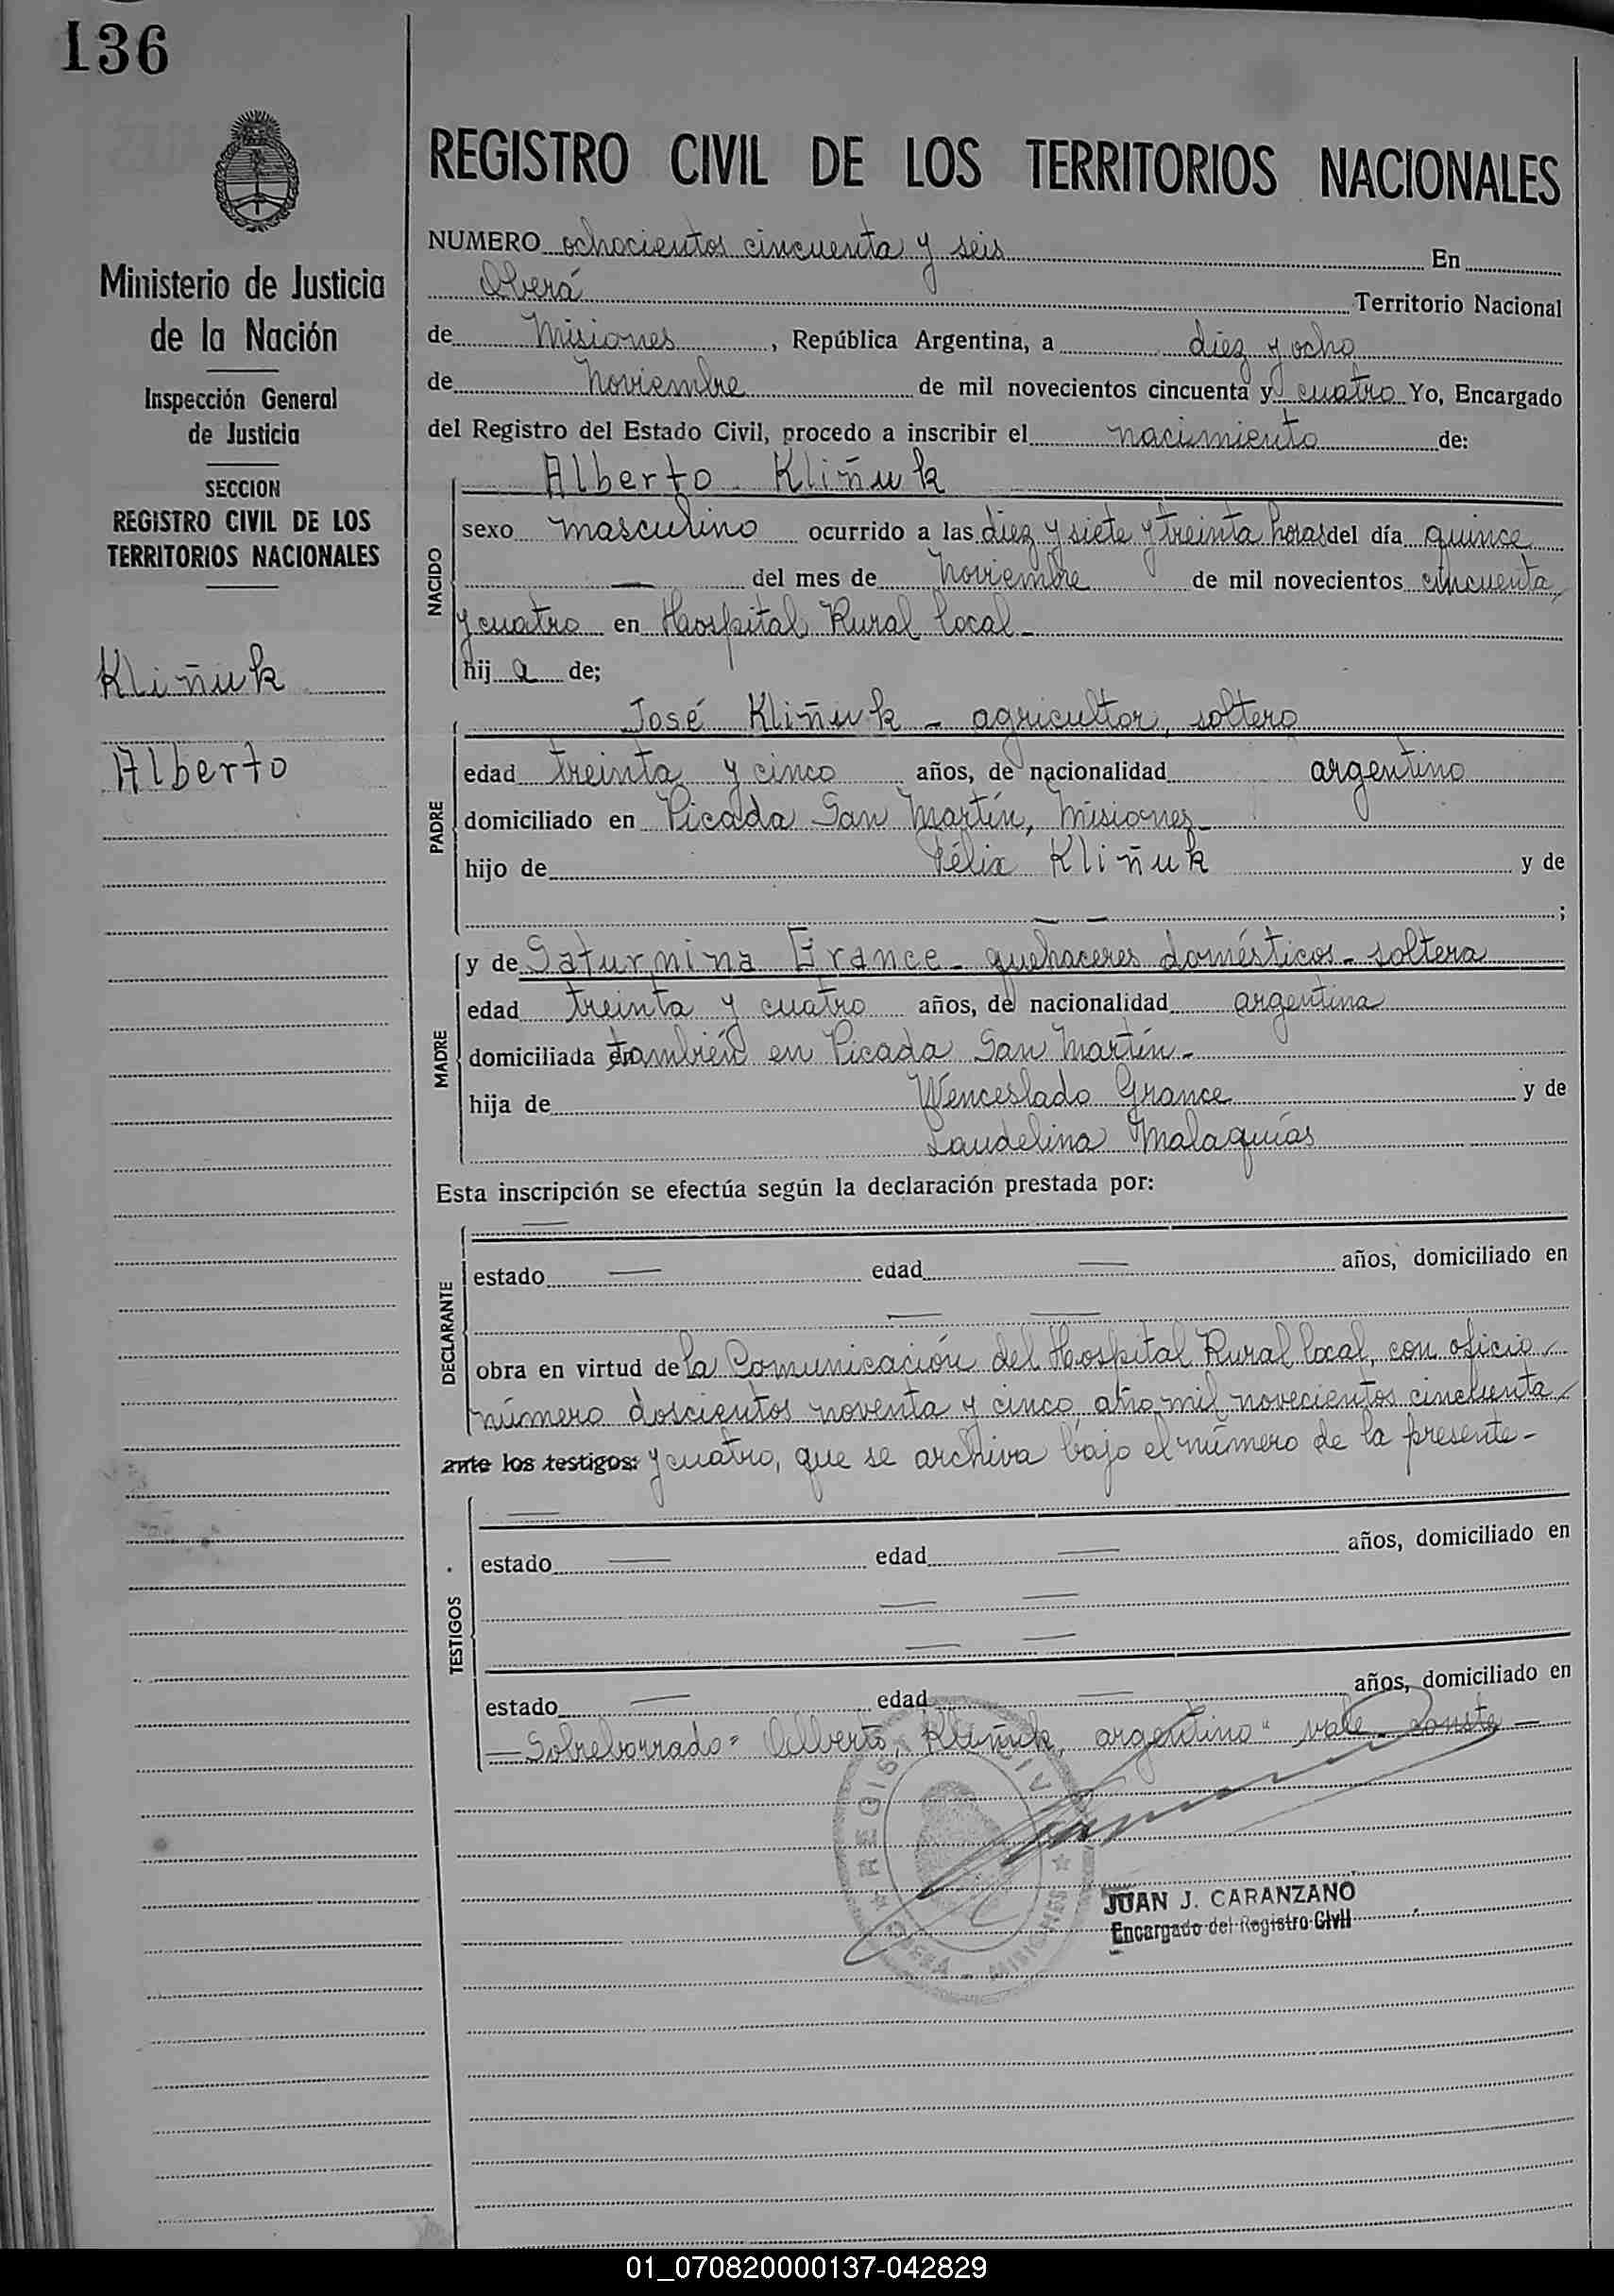 136
Ministerio de Justicia
de la Nación
Inspección General
de Justicia
SECCION
REGISTRO CIVIL DE LOS
TERRITORIOS NACIONALES
Kliñuk
Alberto
REGISTRO CIVIL DE LOS TERRITORIOS NACIONALES
NUMERO ochocientos cincuenta y seis En
Oberá Territorio Nacional
de Misiones, República Argentina, a diez y ocho
de Noviembre de mil novecientos cincuenta y cuatro Yo, Encargado
del Registro del Estado Civil, procedo a inscribir el nacimiento de:
NACIDO
Alberto Kliñuk
sexo masculino ocurrido a las diez y siete y treinta horas del día quince
— del mes de Noviembre de mil novecientos cincuenta
y cuatro en Hospital Rural local -
hij a de;
PADRE
José Kliñuk - agricultor, soltero
edad treinta y cinco años, de nacionalidad argentino
domiciliado en Picada San Martín, Misiones -
hijo de Félix Kliñuk y de
— — ;
MADRE
y de Saturnina Grance - quehaceres domésticos - soltera
edad treinta y cuatro años, de nacionalidad argentina
domiciliada en también en Picada San Martín -
hija de Wenceslado Grance y de
Laudelina Malaquías
Esta inscripción se efectúa según la declaración prestada por:
DECLARANTE
—
estado — edad — años, domiciliado en
— —
obra en virtud de la Comunicación del Hospital Rural local, con oficio
número doscientos noventa y cinco, año mil novecientos cincuenta
ante los testigos: y cuatro, que se archiva bajo el número de la presente -
TESTIGOS
—
estado — edad — años, domiciliado en
— —
— —
estado — edad — años, domiciliado en
— Sobreborrado "Alberto, Kliñuk, argentino" vale - conste —
REGISTRO CIVIL
OBERA - MISIONES
JUAN J. CARANZANO
Encargado del Registro Civil
01_070820000137-042829